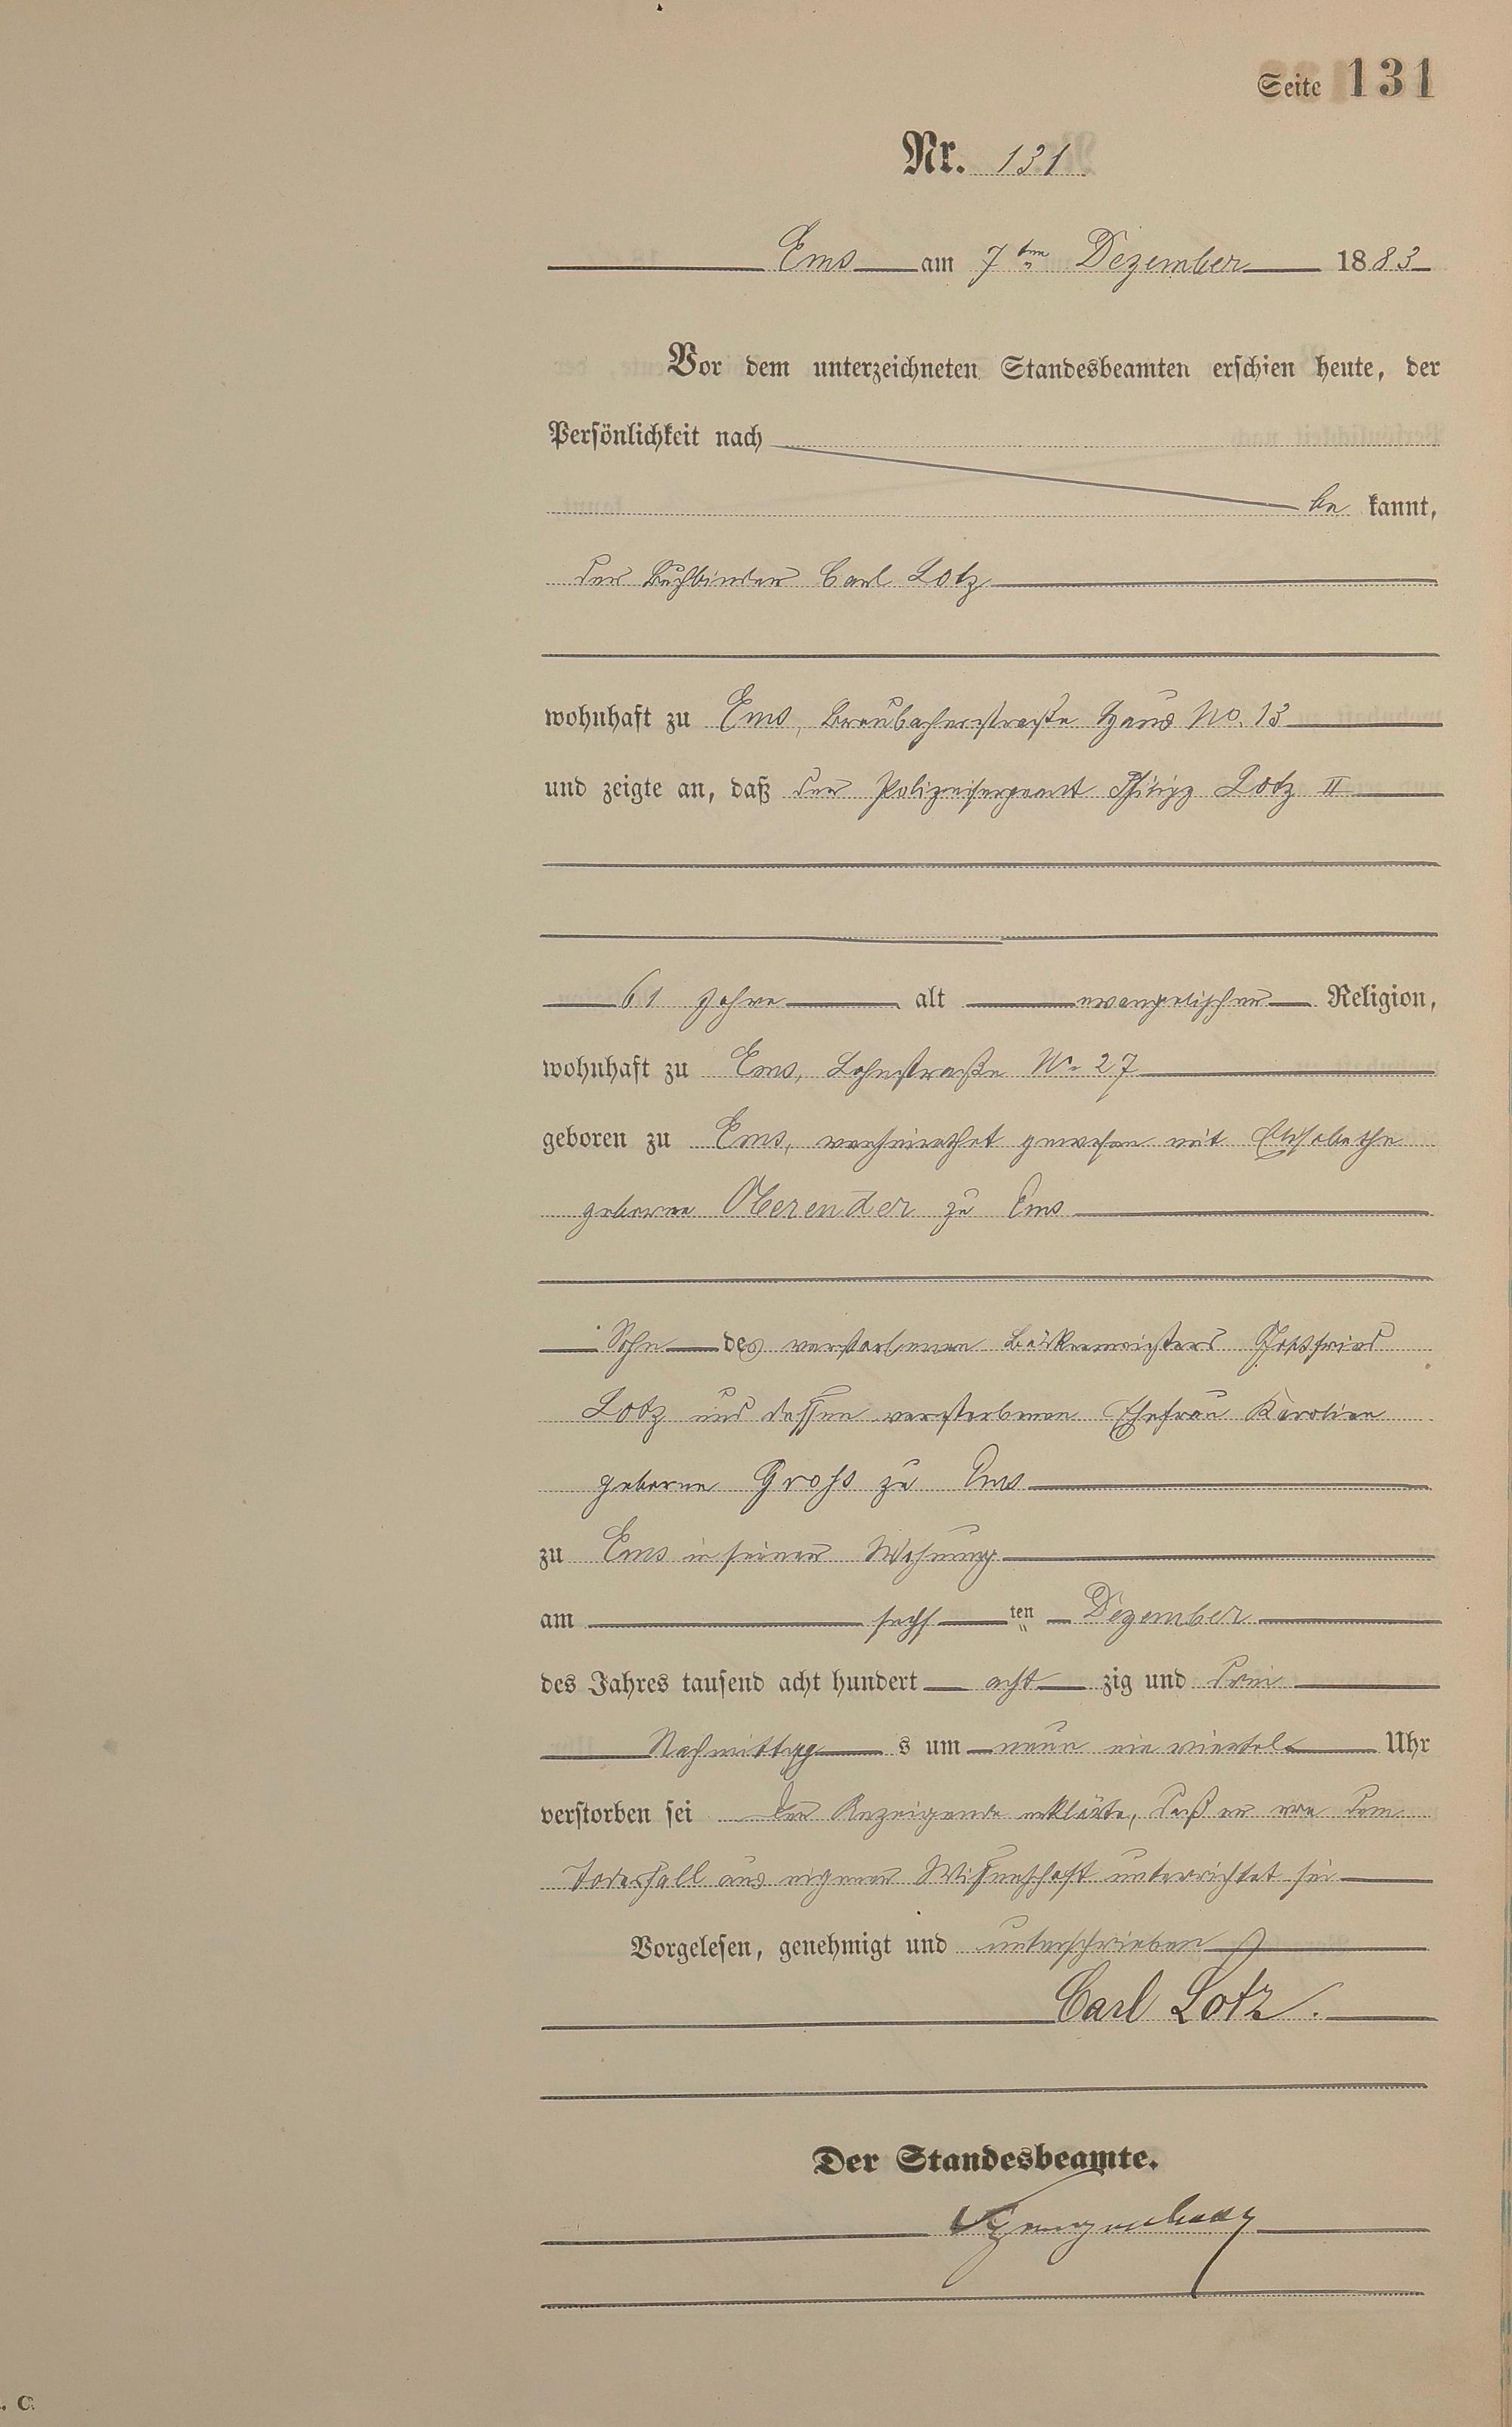 Seite 131
Nr. 131.
Ems am 7ten Dezember 1883
Vor dem unterzeichneten Standesbeamten erschien heute, der
Persönlichkeit nach
be kannt,
der Buchbinder Carl Lotz
wohnhaft zu Ems, Braubacherstraße Haus No. 13
und zeigte an, daß der Polizeisergeant Philipp Lotz II
61 Jahre alt evangelischer Religion,
wohnhaft zu Ems, Lahnstraße No 27
geboren zu Ems, verheirathet gewesen mit Elisabethe
geborene Oberender zu Ems
Sohn des verstorbenen Bäckermeisters Gottfried
Lotz und dessen verstorbenen Ehefrau Karoline
geborne Groß zu Ems
zu Ems in seiner Wohnung
am sechsten Dezember
des Jahres tausend acht hundert acht zig und drei
Nachmittags um neun ein viertel Uhr
verstorben sei Der Anzeigende erklärte, daß er von dem
Todesfall aus eigener Wissenschaft unterrichtet sei
Vorgelesen, genehmigt und unterschrieben
Carl Lotz.
Der Standesbeamte.
. C.